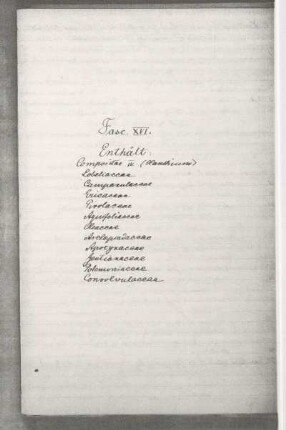 Fasc. XVI.
Enthält:
Compositae II. (Xanthium)
Lobeliaceae
Campanulaceae
Ericaceae
Pirolaceae
Aquifoliaceae
Oleaceae
Asclepiadaceae
Apocynaceae
Gentianaceae
Polemoniaceae
Convolvulaceae